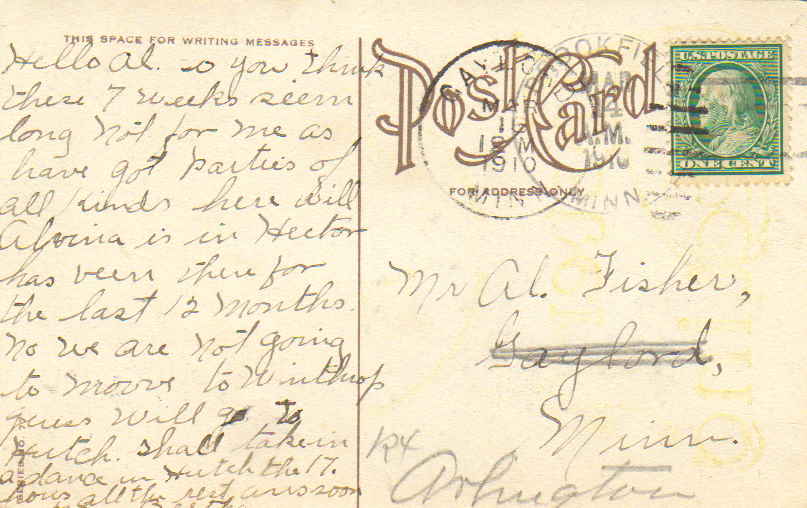 THIS SPACE FOR WRITING MESSAGES
Hello Al. Do you think
these 7 weeks seem
long Not for me as
have got parties of
all kinds here will
Alvina is in Hector
has been there for
the last 12 months.
No we are not going
to moove to Winthrop
guess will go to
Hutch. Shall take in
a dance in Hutch the 17.
hows all the rest ans soon
Post Card
FOR ADDRESS ONLY
GAYLORD
MAR
16
12 M
1910
MINN.
BROOKFIELD
MAR
M.
1910
MINN.
U.S. POSTAGE
ONE CENT
Mr Al. Fisher,
Gaylord,
Minn.
R4
Arlington